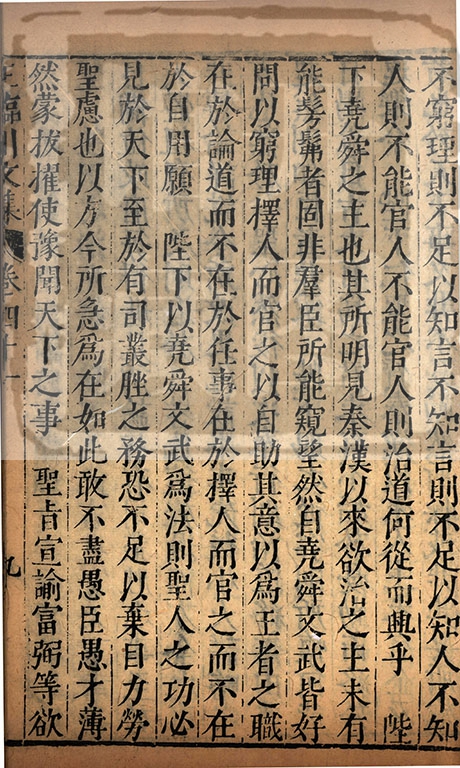 不窮理則不足以知言不知言則不足以知人不知
人則不能官人不能官人則治道何從而興乎 陛
下堯舜之主也其所明見秦漢以來欲治之主未有
能髣髴者固非羣臣所能窺望然自堯舜文武皆好
問以窮理擇人而官之以自助其意以爲王者之職
在於論道而不在於任事在於擇人而官之而不在
於自用願 陛下以堯舜文武爲法則聖人之功必
見於天下至於有司叢脞之務恐不足以棄日力勞
聖慮也以方今所急爲在如此敢不盡愚臣愚才薄
然蒙拔擢使豫聞天下之事 聖旨宣諭富弼等欲
王臨川文集 卷四十一 九